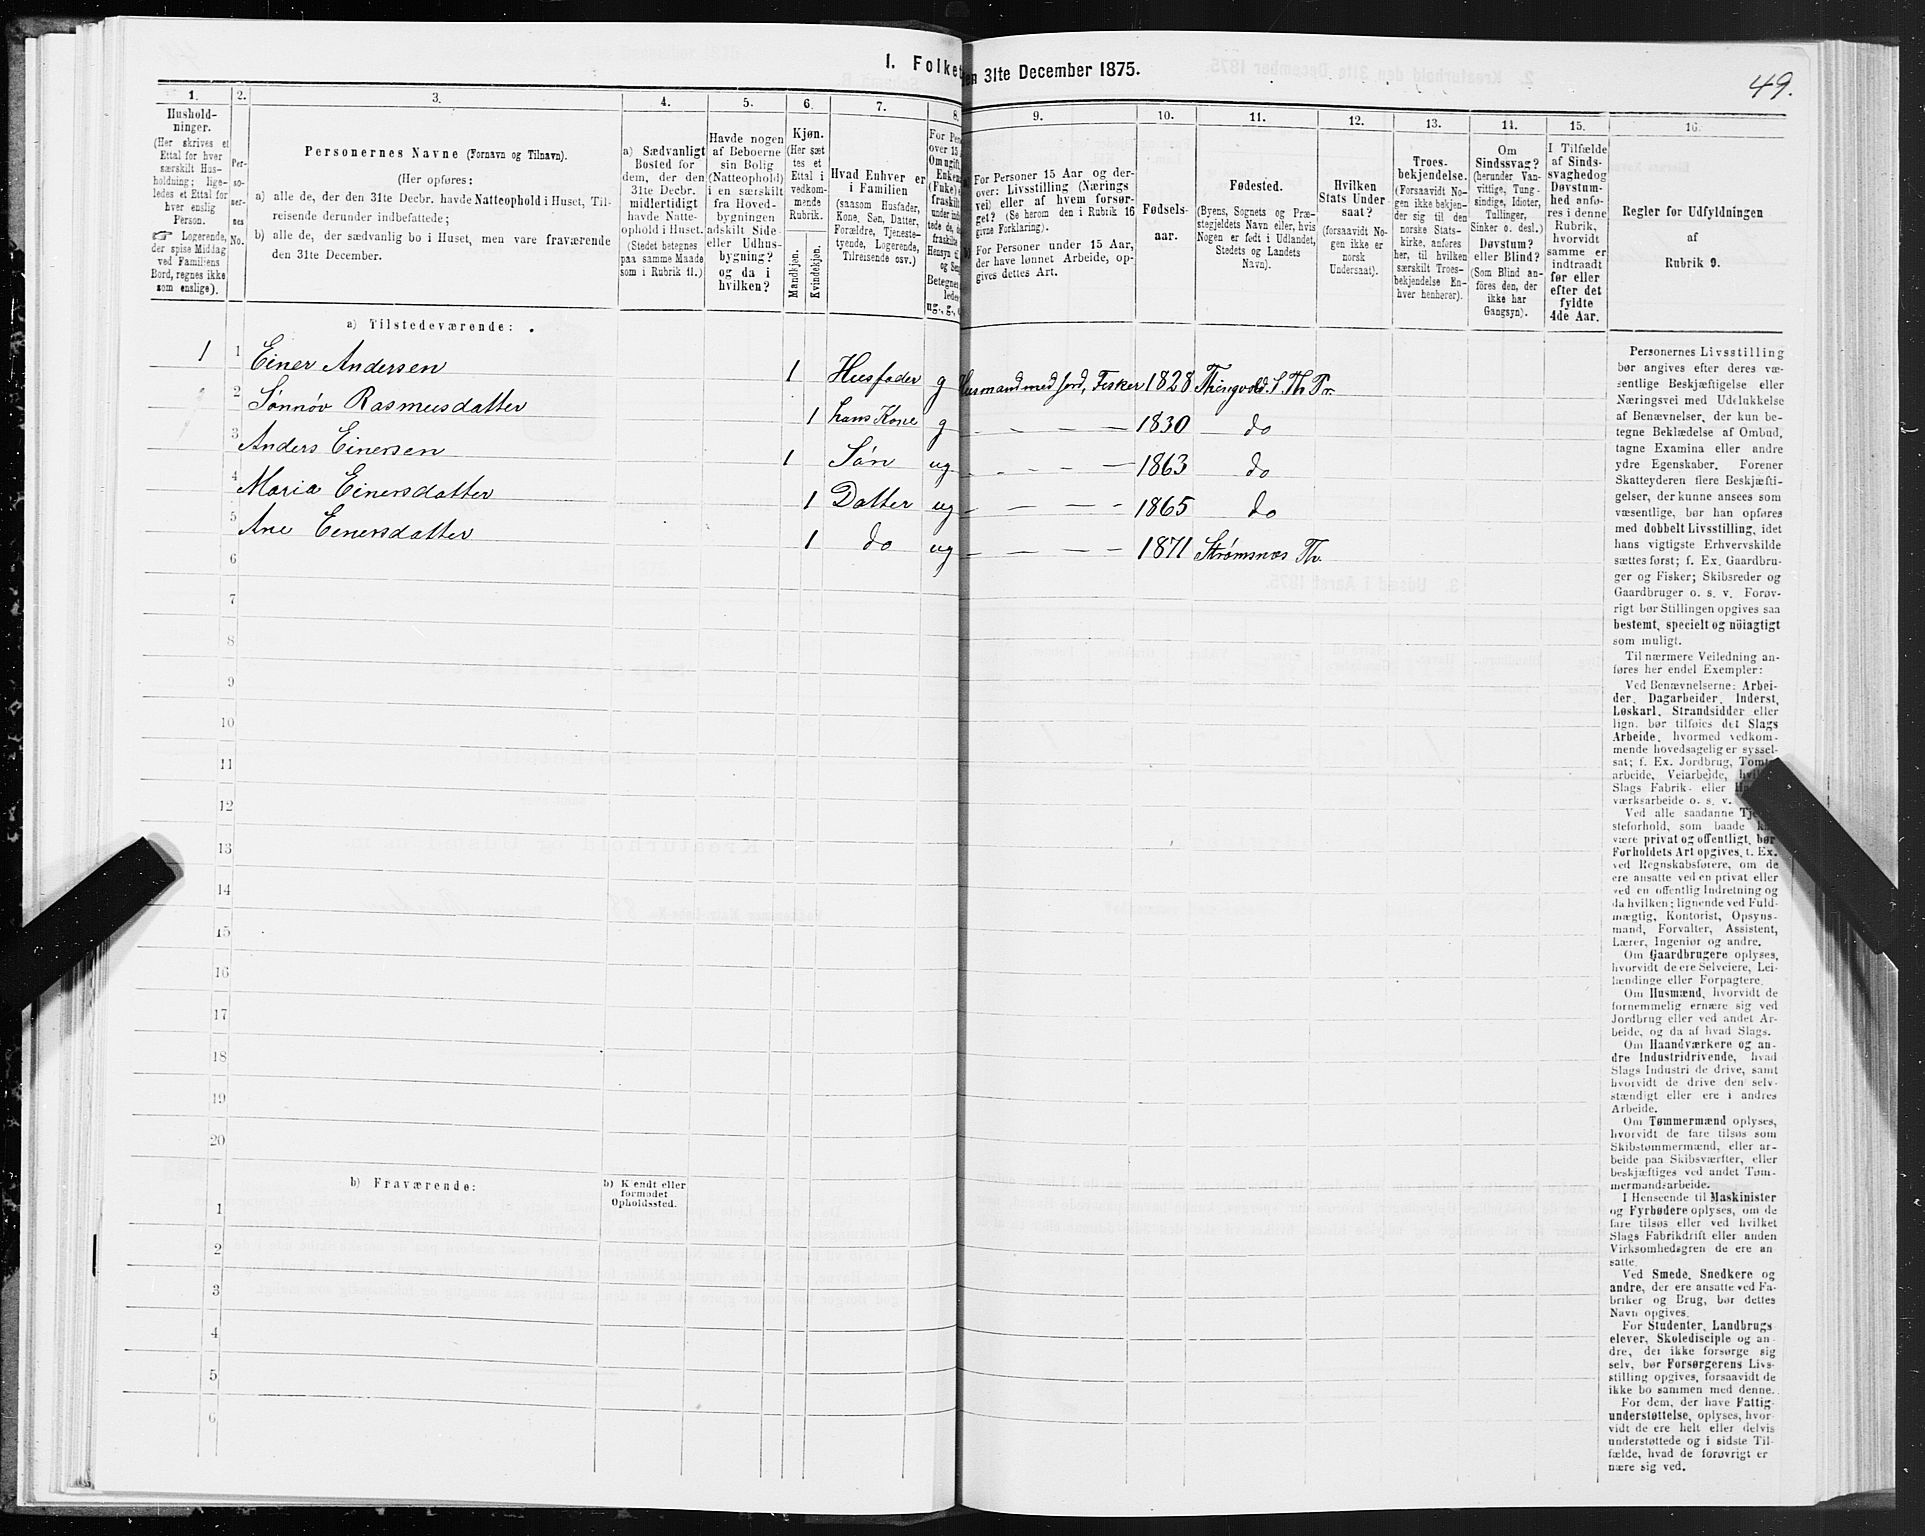 1. Folket en 31te December 1875.
49.
1. 2. 3. 4. 5. 6. 7. 8. 9. 10. 11. 12. 13. 14. 15. 16.
Hushold-
ninger.
(Her skrives et
Ettal for hver
særskilt Hus-
holdning; lige-
ledes et Ettal for
hver enslig
Person.
☞ Logerende,
der spise Middag
ved Familiens
Bord, regnes ikke
som enslige).
Per-
so-
ner-
nes
No.
Personernes Navne (Fornavn og Tilnavn).
(Her opføres:
a) alle de, der den 31te Decbr. havde Natteophold i Huset, Til-
reisende derunder indbefattede;
b) alle de, der sædvanlig bo i Huset, men vare fraværende
den 31te December.
a) Sædvanligt
Bosted for
dem, der den
31te Decbr.
midlertidigt
havde Natte-
ophold i Huset.
(Stedet betegnes
paa samme Maade
som i Rubrik 11.)
Havde nogen
af Beboerne
sin Bolig
(Natteophold)
i en særskilt
fra Hoved-
bygningen
adskilt Side-
eller Udhus-
bygning?
og da i
hvilken?
Kjøn.
(Her sæt
tes et
Ettal i
vedkom-
mende
Rubrik.
Mandkjøn.
Kvindekjøn.
Hvad Enhver er
i Familien
(saasom Husfader,
Kone, Søn, Datter,
Forældre, Tjeneste-
tyende, Logerende,
Tilreisende osv.)
For Pers
over 15
Om ugift,
Enken
(Fuke)
fraskilt
For Personer 15 Aar og der-
over: Livsstilling (Nærings
vei) eller af hvem forsør-
get? (Se herom den i Rubrik 16
givne Forklaring).
For Personer under 15 Aar,
der have lønnet Arbeide, op-
gives dettes Art.
Fødsels-
aar.
Fødested.
(Byens, Sognets og Præ-
stegjeldets Navn eller, hvis
Nogen er født i Udlandet,
Stedets og Landets
Navn).
Hvilken
Stats Under
saat?
(forsaavidt No-
gen ikke er
norsk
Undersaat).
Troes-
bekjendelse.
(Forsaavidt No-
gen ikke bekjen-
der sig til den
norske Stats-
kirke, anføres
her, til hvilken
særskilt Troes-
bekjendelse En-
hver henhører).
Om
Sindssvag?
(herunder Van-
vittige, Tung-
sindige, Idioter,
Tullinger,
Sinker o. desl.)
Døvstum?
eller Blind?
(Som Blind an-
føres den, der
ikke har
Gangsyn).
I Tilfælde
af Sinds-
svaghedog
Døvstum-
hed anfø-
res i denne
Rubrik,
hvorvidt
samme er
indtraadt
før eller
efter det
fyldte
4de Aar.
Regler for Udfyldningen
af
Rubrik 9.
a) Tilstedeværende:
1 1 Einer Andersen 1 Husfader g Husmand med Jord, Fisker 1828 Thingvold S Th Pr.
2 Sønnøv Rasmusdatter 1 hans Kone g - - - 1830 do
3 Anders Einersen 1 Søn ug - - - 1863 do
4 Maria Einersdatter 1 Datter ug - - - 1865 do
5 Ane Einersdatter 1 do ug - - - 1871 Strømsnæs Th.
6
7
8
9
10
11
12
13
14
15
16
17
18
19
20
b) Fraværende:
b) Kjendt eller
formodet
Opholdssted.
1
2
3
4
5
6
Personernes Livsstilling
bør angives efter deres væ-
sentlige Beskjæftigelse eller
Næringsvei med Udelukkelse
af Benævnelser, der kun be-
tegne Beklædelse af Ombud,
tagne Examina eller andre
ydre Egenskaber. Forener
Skatteyderen flere Beskjæfti-
gelser, der kunne ansees som
væsentlige, bør han opføres
med dobbelt Livsstilling, idet
hans vigtigste Erhvervskilde
sættes først; f. Ex. Gaardbru-
ger og Fisker; Skibsreder og
Gaardbruger o. s. v. Forøv-
rigt bør Stillingen opgives saa
bestemt, specielt og nöiagtigt
som muligt.
Til nærmere Veiledning an-
føres her endel Exempler:
Ved Benævnelserne: Arbei-
der, Dagarbeider, Inderst,
Løskarl, Strandsidder eller
lign. bør tilføies det Slags
Arbeide, hvormed vedkom-
mende hovedsagelig er syssel-
sat; f. Ex. Jordbrug, Tomt-
arbeide, Veiarbeide,
Slags Fabrik- eller
værksarbeide o. s. v.
Ved alle saadanne
steforhold, som baade
være privat og offentligt, bør
Forholdets Art opgives, f. Ex.
ved Regnskabsførere, om de
ere ansatte ved en privat eller
ved en offentlig Indretning og
da hvilken; lignende ved Fuld-
mægtig, Kontorist, Opsyns-
mand, Forvalter, Assistent,
Lærer, Ingeniør og andre.
Om Gaardbrugere oplyses,
hvorvidt de ere Selveiere, Lei-
lændinge eller Forpagtere.
Om Husmænd, hvorvidt de
fornemmelig ernære sig ved
Jordbrug eller ved andet Ar-
beide, og da af hvad Slags.
Om Haandværkere og an-
dre Industridrivende, hvad
Slags Industri de drive, samt
hvorvidt de drive den selv-
stændigt eller ere i andres
Arbeide.
Om Tømmermænd oplyses,
hvorvidt de fare tilsøs som
Skibstømmermænd, eller ar-
beide paa Skibsværfter, eller
beskjæftiges ved andet Tøm-
mermandsarbeide.
I Henseende til Maskinister
og Fyrbødere oplyses, om de
fare tilsøs eller ved hvilket
Slags Fabrikdrift eller anden
Virksomhedsgren de ere an-
satte.
Ved Smede, Snedkere og
andre, der ere ansatte ved Fa-
briker og Brug, bør dettes
Navn opgives.
For Studenter, Landbrugs
elever, Skoledisciple og an-
dre, der ikke forsørge sig
selv, bør Forsørgerens Livs-
stilling opgives, forsaavidt de
ikke bo sammen med denne.
For dem, der have Fattig-
understøttelse, oplyses, hvor-
vidt de ere helt eller delvis
understøttede og i sidste Til-
fælde, hvad de forøvrigt er
nære sig ved.